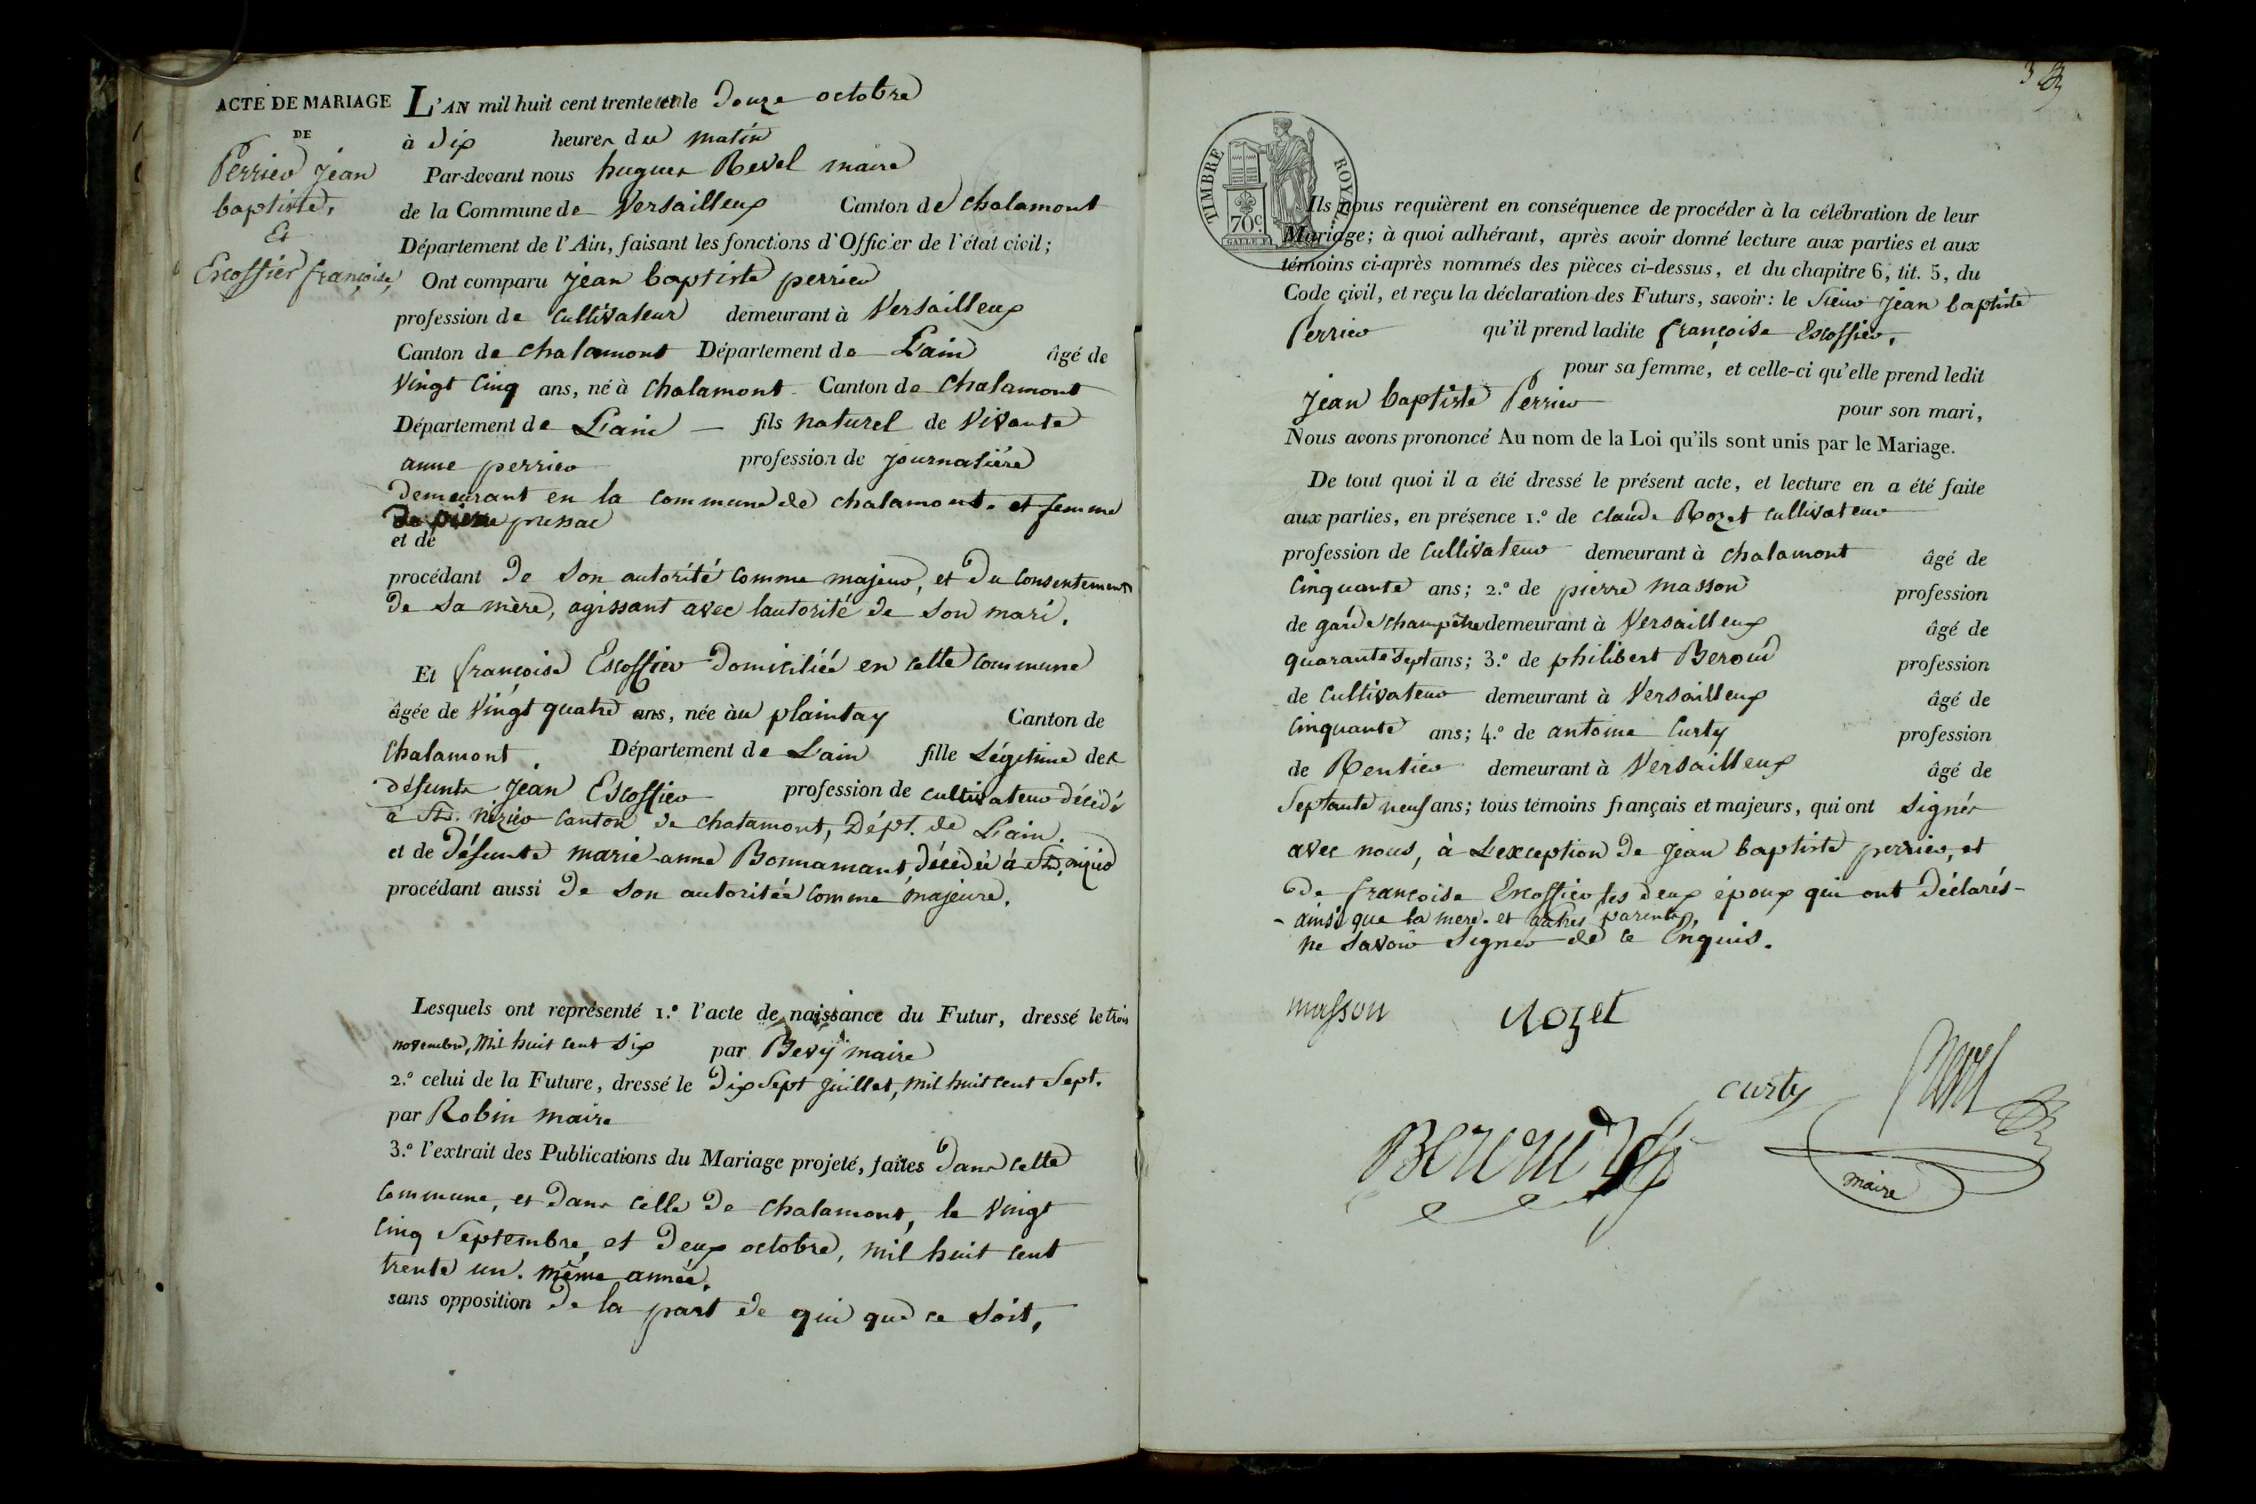 ACTE DE MARIAGE
DE
Perrier jean
baptiste,
Et
Escoffier françoise,
L'AN mil huit cent trente et un le Douze octobre
à dix heures du matin
Par-devant nous hugues Revel maire
de la Commune de Versailleux Canton de chalamont
Département de l'Ain, faisant les fonctions d'Officier de l'état civil;
Ont comparu jean baptiste perrier
profession de cultivateur demeurant à Versailleux
Canton de chalamont Département de L'ain âgé de
vingt cinq ans, né à chalamont Canton de chalamont
Département de L'ain — fils naturel de vivante
anne perrier profession de journalière
demeurant en la commune de chalamont. et femme
de pierre
et de
procédant de son autorité comme majeur, et du consentement
de sa mère, agissant avec l'autorité de son mari.
Et françoise Escoffier domiciliée en cette commune
âgée de vingt quatre ans, née au plaintay Canton de
chalamont Département de L'ain fille Légitime des
défunts jean Escoffier profession de cultivateur décédé
à St. nizier canton de chalamont, Dépt. de L'ain.
et de défunte marie-anne Bonnamant, décédée à St. nizier
procédant aussi de son autoritée comme majeure.
Lesquels ont représenté 1.º l'acte de naissance du Futur, dressé le trois
novembre, mil huit cent six par Bevy maire
2.º celui de la Future, dressé le dix sept juillet, mil huit cent sept.
par Robin maire
3.º l'extrait des Publications du Mariage projeté, faites dans cette
commune, et dans celle de chalamont, le vingt
cinq septembre, et deux octobre, mil huit cent
trente un. même année.
sans opposition de la part de qui que ce soit,
TIMBRE ROYAL
70 c
Ils nous requièrent en conséquence de procéder à la célébration de leur
Mariage; à quoi adhérant, après avoir donné lecture aux parties et aux
témoins ci-après nommés des pièces ci-dessus, et du chapitre 6, tit. 5, du
Code civil, et reçu la déclaration des Futurs, savoir: le sieur jean baptiste
Perrier qu'il prend ladite françoise Escoffier,
pour sa femme, et celle-ci qu'elle prend ledit
jean baptiste Perrier pour son mari,
Nous avons prononcé Au nom de la Loi qu'ils sont unis par le Mariage.
De tout quoi il a été dressé le présent acte, et lecture en a été faite
aux parties, en présence 1.º de claude Rozet cultivateur
profession de cultivateur demeurant à chalamont âgé de
cinquante ans; 2.º de pierre masson profession
de garde champêtre demeurant à Versailleux âgé de
quarante sept ans; 3.º de philibert Beroud profession
de cultivateur demeurant à Versailleux âgé de
cinquante ans; 4.º de antoine Curty profession
de Rentier demeurant à Versailleux âgé de
septante neuf ans; tous témoins français et majeurs, qui ont signés
avec nous, à L'exception de jean baptiste perrier, et
de françoise Escoffier les deux époux qui ont déclarés-
- ainsi que la mere. et autres parents,
ne savoir signer de ce Enquis.
masson
Rozet
curty
Revel
Beroud
maire